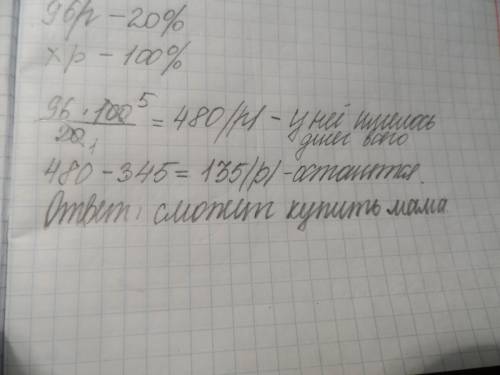 96р – 20%
хр – 100%
96 · 100 5
20 1
= 480 (р) – у неё имелось
денег всего
480 – 345 = 135 (р) – останется.
Ответ: сможет купить мама